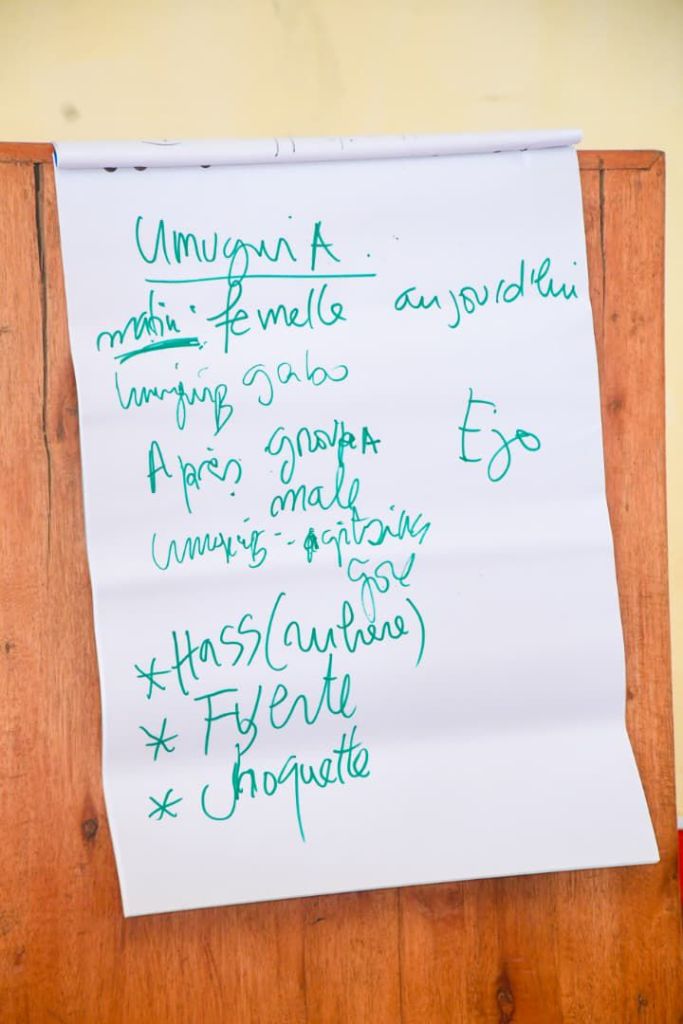 Umugwi A.
matin: femelle aujourd'hui
gabo
Après groupe A Ejo
male
gitsina
gore
* Hass (mihene)
* Fuerte
* Choquette